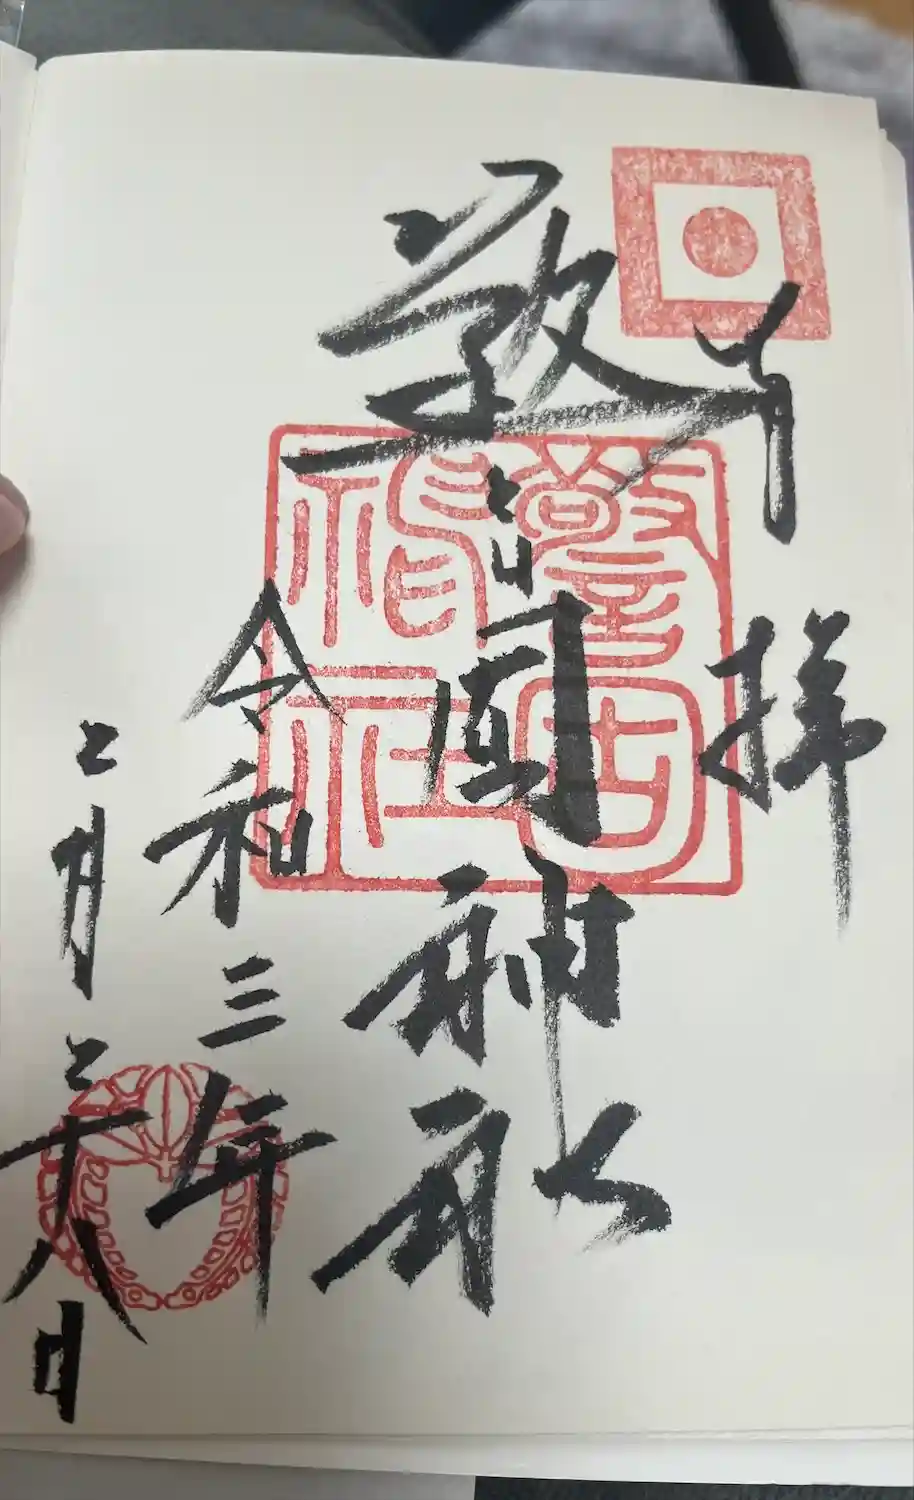 奉拝
警固神社
警固
神社
令和三年
二月二十八日